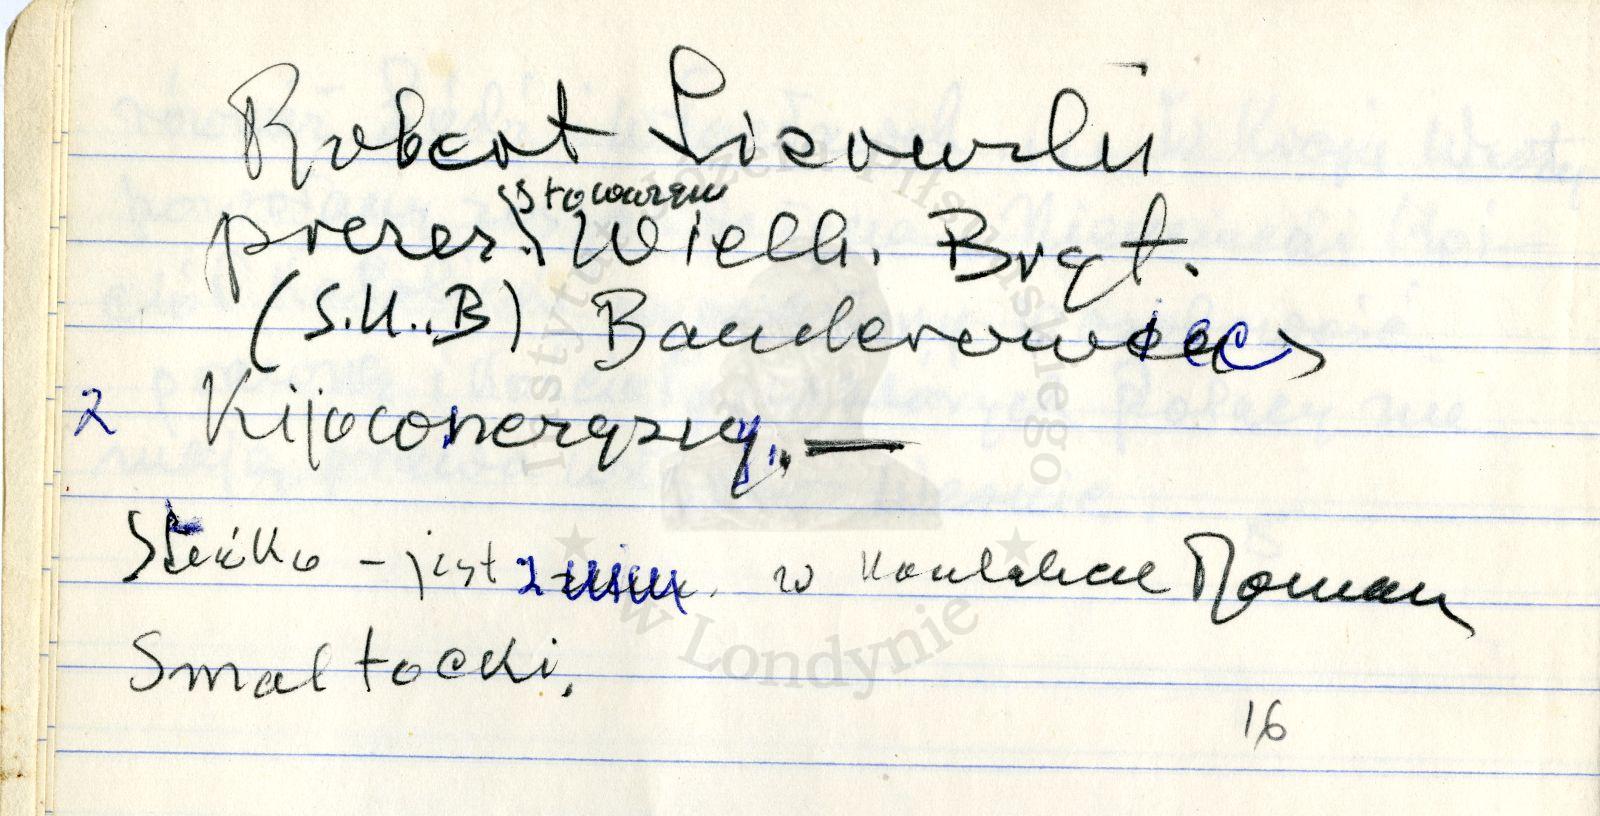 Robert Lisowski
prezes Stowarzysz
Wielk. Bryt.
(S.U.B) Banderowiec
2 Kijoconerązny. —
Stećko - jest z nim w kontakcie Roman
Smal tocki.
16
Instytut Józefa Piłsudskiego
w Londynie